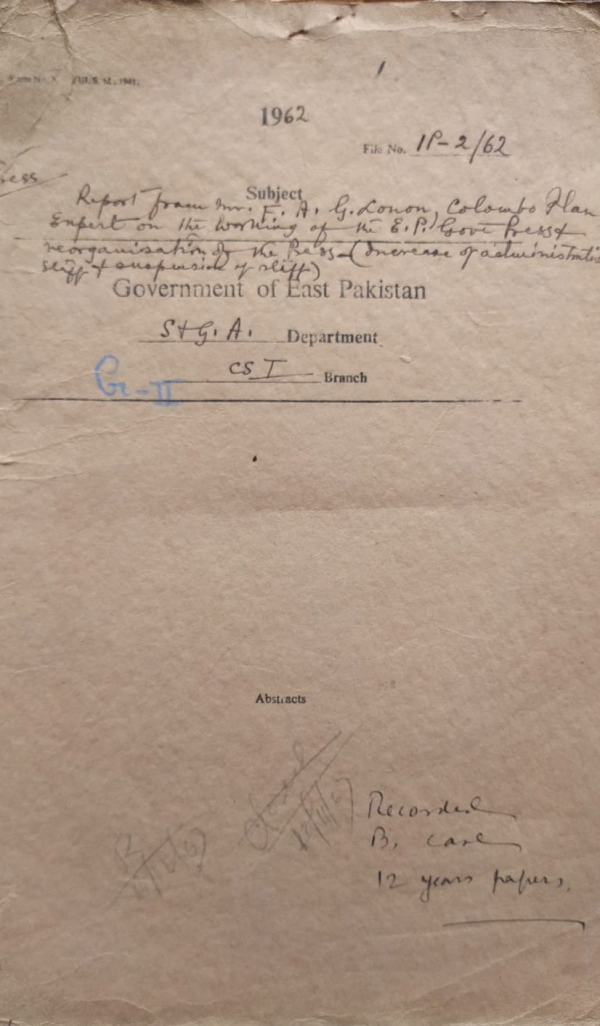 1962
File No. 1P-2/62
Subject
Report from Mr. F. A. G. Lonon, Colombo Plan
Expert on the working of the E.P. Govt Press &
reorganisation of the Press (Increase of administrative
staff & suspension of staff)
Government of East Pakistan
S & G. A. Department
CS I Branch
Gr-II
Abstracts
Recorded
B. Case
12 years papers.